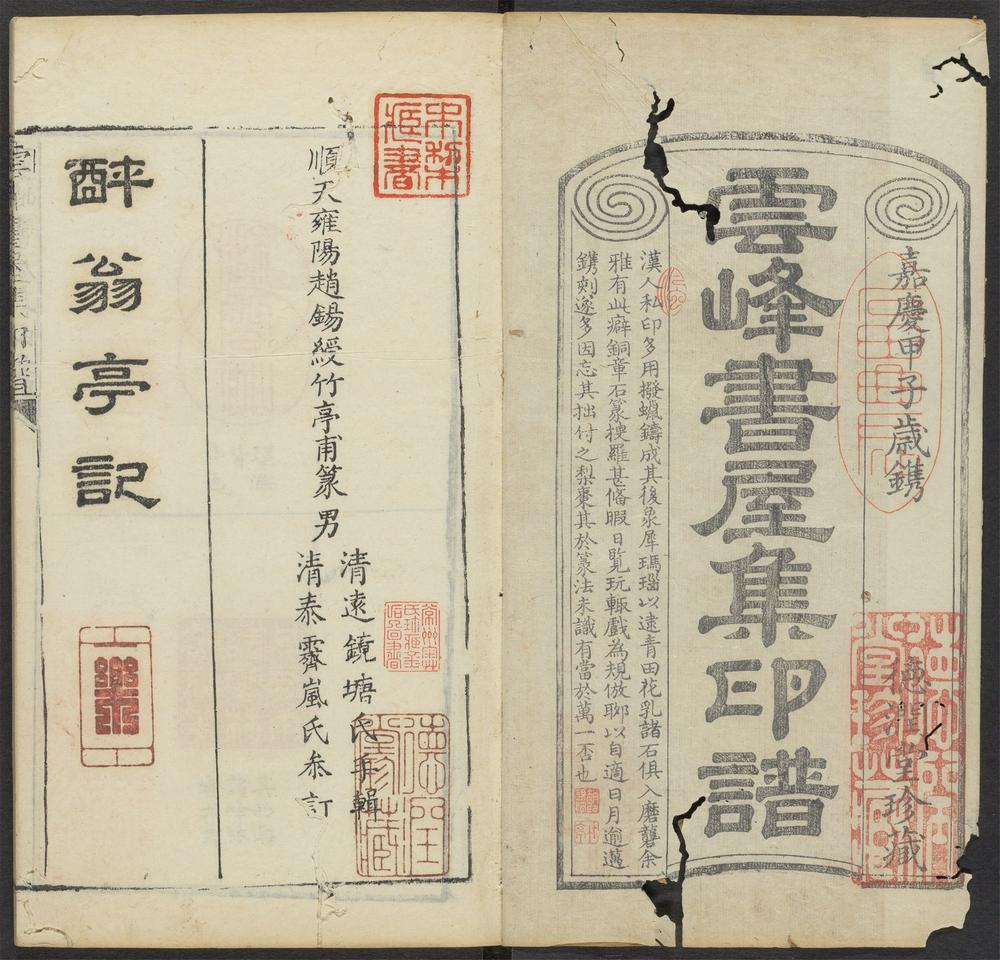 嘉慶甲子歲鐫
德潤堂珍藏
雲峰書屋集印譜
漢人私印多用撥蠟鑄成其後象犀瑪瑙以逮青田花乳諸石俱入磨礱余
雅有此癖銅章石篆搜羅甚偹暇日覽玩輒戲為規倣聊以自適日月逾邁
鐫刻遂多因忘其拙付之梨棗其於篆法未識有當於萬一否也
順天雍陽趙錫綬竹亭甫篆男
清遠鏡塘氏手輯
清泰霽嵐氏叅訂
醉翁亭記
德潤堂藏